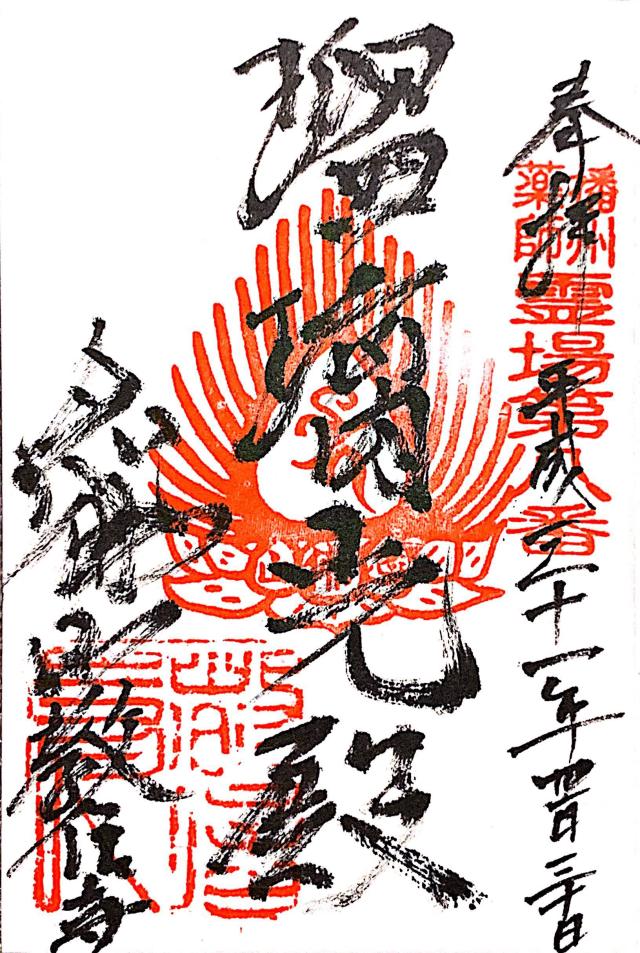 奉拝 平成三十一年四月三十日
播州
薬師
霊場第八番
瑠璃光殿
念仏山教信寺